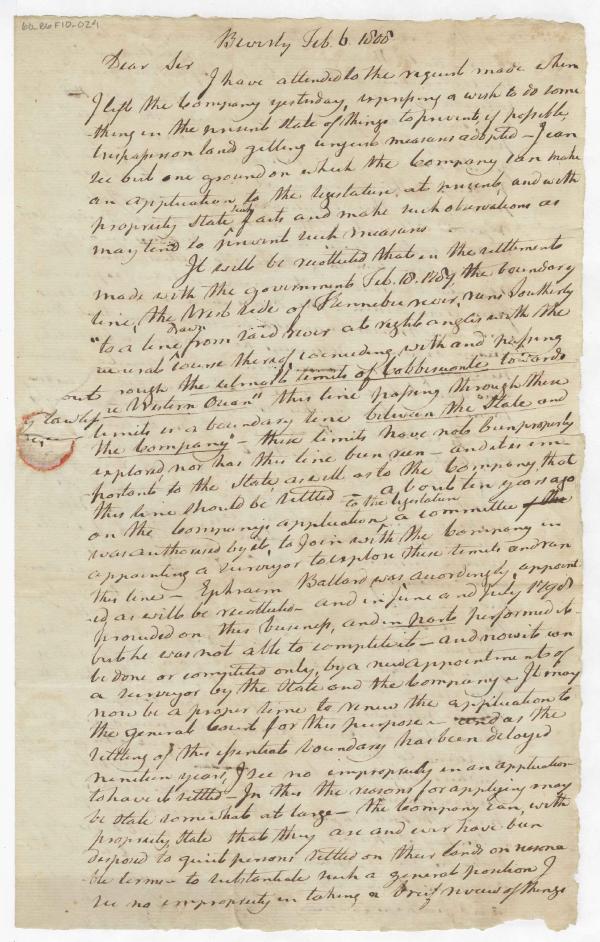 60.86F1D-024
Beverly Feb. 6 1808
Dear Sir
I have attended to the request made when
I left the Company yesterday, expressing a wish to do some
-thing in the present state of things to prevent, if possible,
trespassers on land getting unjust measures adopted - I can
see but one ground on which the Company can make
an application to the legislature at present, and with
propriety State facts and make such observations as
may tend to prevent such measures
It will be recollected that in the settlement
made with the government Feb. 18. 1789 the boundary
line, the West side of Kennebec river, runs Southerly
"to a line drawn from said river at right angles with the
general course thereof coinciding with and passing
through the utmost limits of Cobbiseconte towards
the Western Ocean" this line passing through these
limits is a boundary line between the State and
the Company" - these limits have not been properly
explored, nor has this line been run - and it is im
portant to the State, as well as to the Company, that
this line should be settled - about ten years ago
on the Company's application to the legislature a committee
was authorised by it, to Join with the Company in
appointing a surveyor to explore these limits and run
this line - Ephraim Ballard was accordingly appoint
-ed, as will be recollected - and in June and July 1798
proceeded on this business, and in part performed it
but he was not able to complete it - and now it can
be done or completed only, by a new appointment of
a surveyor by the State and the Company - It may
now be a proper time to renew the application to
the general Court for this purpose - as the
settling of this essential boundary has been delayed
nineteen years, I see no impropriety in an application
to have it settled - In this the reasons for applying may
be state somewhat at large - the Company can, with
propriety State that they are and ever have been
disposed to quiet persons settled on their lands on reasona
ble terms - to substantiate such a general position I
see no impropriety in taking a brief review of things
out